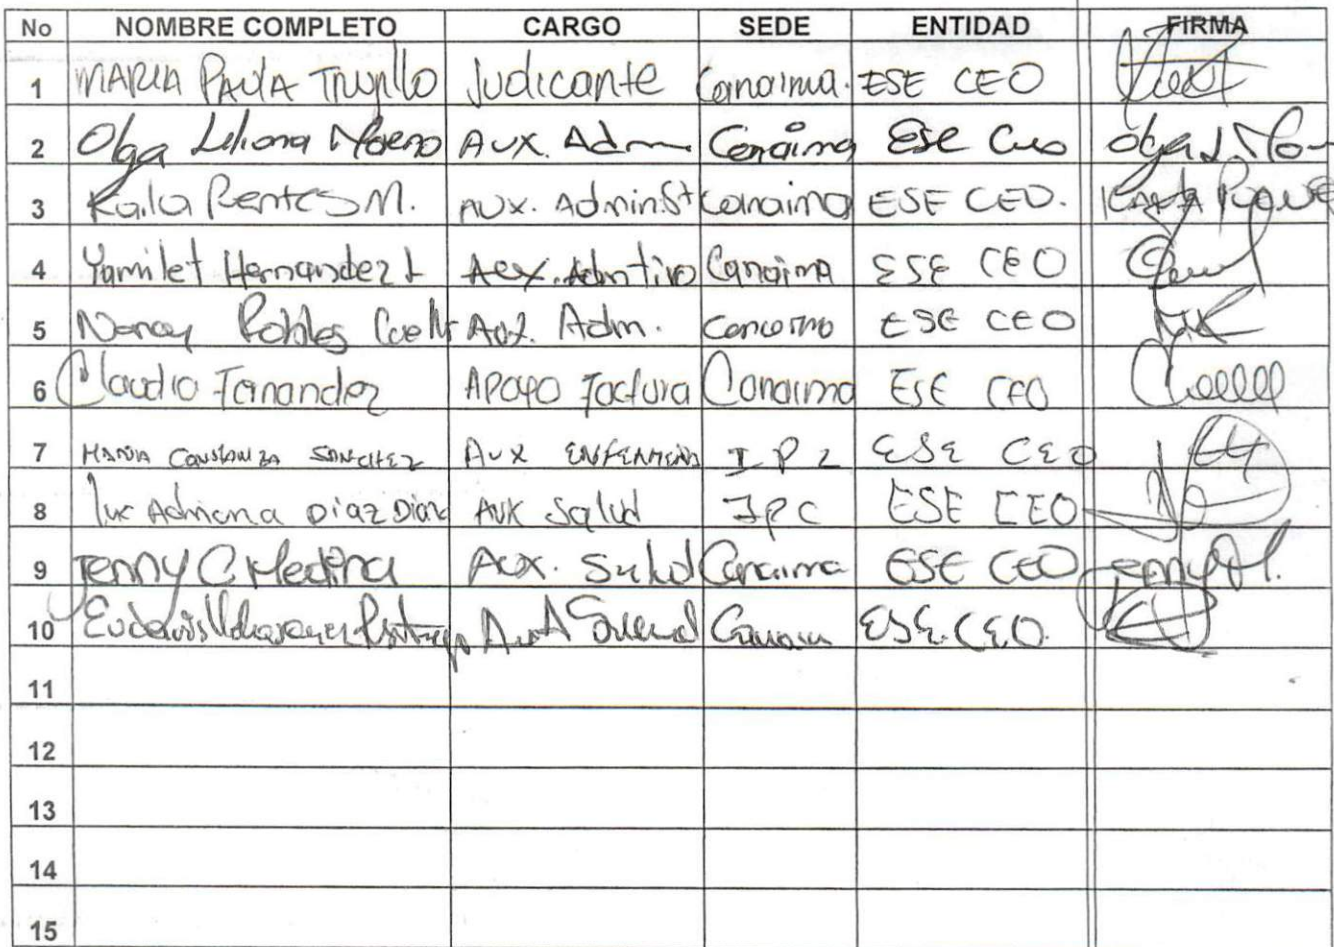 No NOMBRE COMPLETO CARGO SEDE ENTIDAD FIRMA
1 MARIA PAULA Trujillo Judicante Canaima. ESE CEO
2 Olga Liliana Moreno AUX. Adm Canaima ESE CEO Olga L. Mo
3 Karla Rentes M. AUX. Administ Canaima ESE CEO.
4 Yamilet Hernandez L Aux. Admtivo Canaima ESE CEO
5 Nancy Robles Coello Aux. Adm. Canaima ESE CEO
6 Claudia Fernandez APOYO Factura Canaima ESE CEO
7 MARIA CONSTANZA SANCHEZ AUX ENFERMERIA I P Z ESE CEO
8 Luz Adriana Diaz Diaz AUX Salud IPC ESE CEO
9 Jenny C. Medina Aux. Salud Canaima ESE CEO Jenny M.
10 ESE. CEO.
11
12
13
14
15